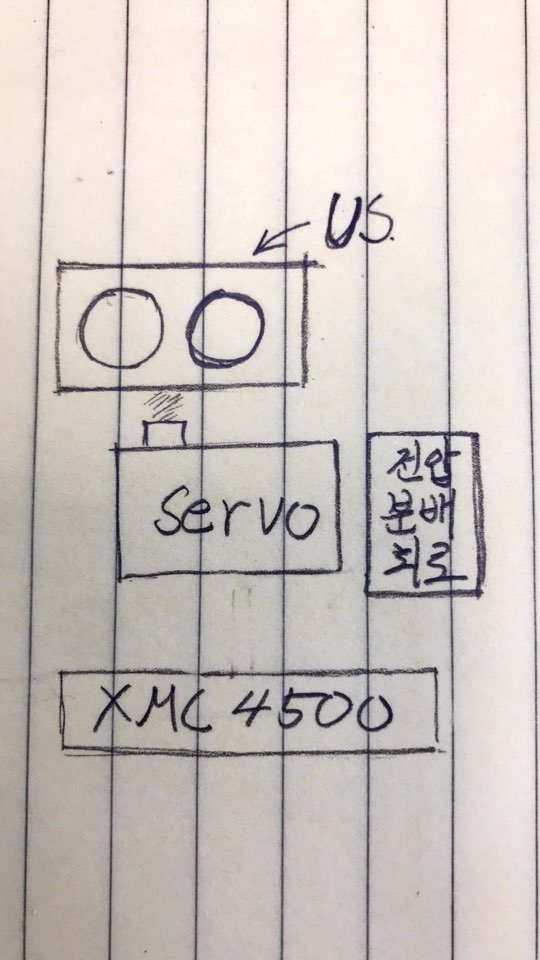 US.
servo
전압
분배
회로
XMC 4500